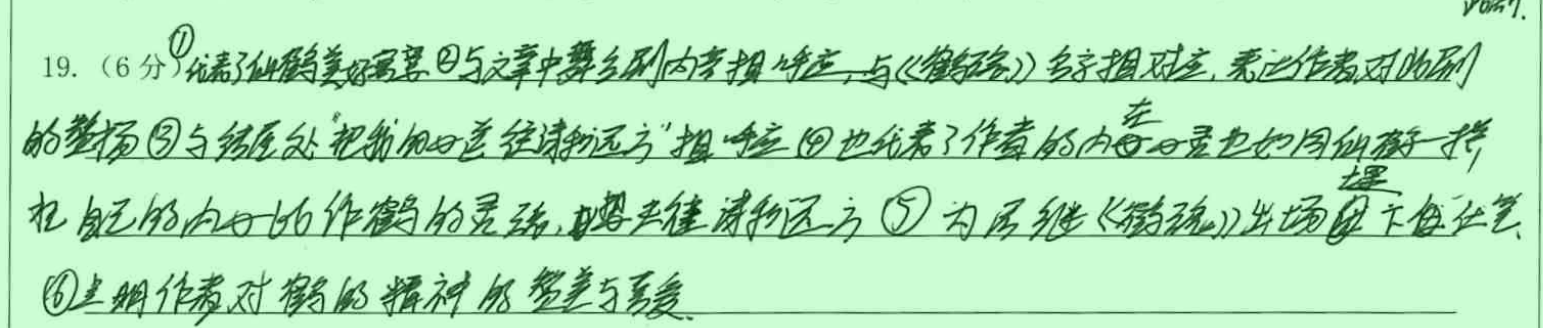 19.（6分）①代表了仙鹤美好寓意②与文章中舞台剧内容相呼应，与《鹤魂》名字相对应，表达作者对此剧
的赞扬③与结尾处"把我的心送往诗和远方"相呼应④也代表了作者的内在心灵也如同仙鹤一样，
把自己的内心比作鹤的灵魂，想去往诗和远方⑤为后继《鹤魂》出场埋下伏笔、
⑥表明作者对鹤的精神的赞美与喜爱、